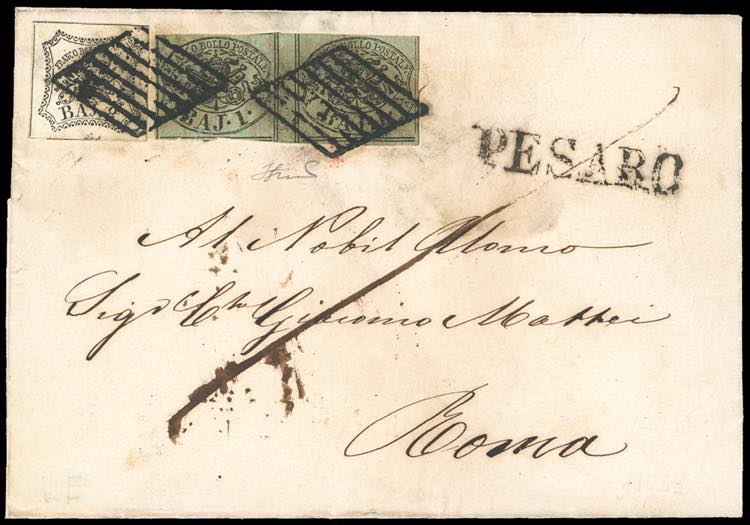 FRANCO BOLLO POSTALE
BAJ
FRANCO BOLLO POSTALE
BAJ. 1.
FRANCO BOLLO POSTALE
BAJ
PESARO
Al Nobil Uomo
Sig.r Cte Giacomo Mattei
Roma